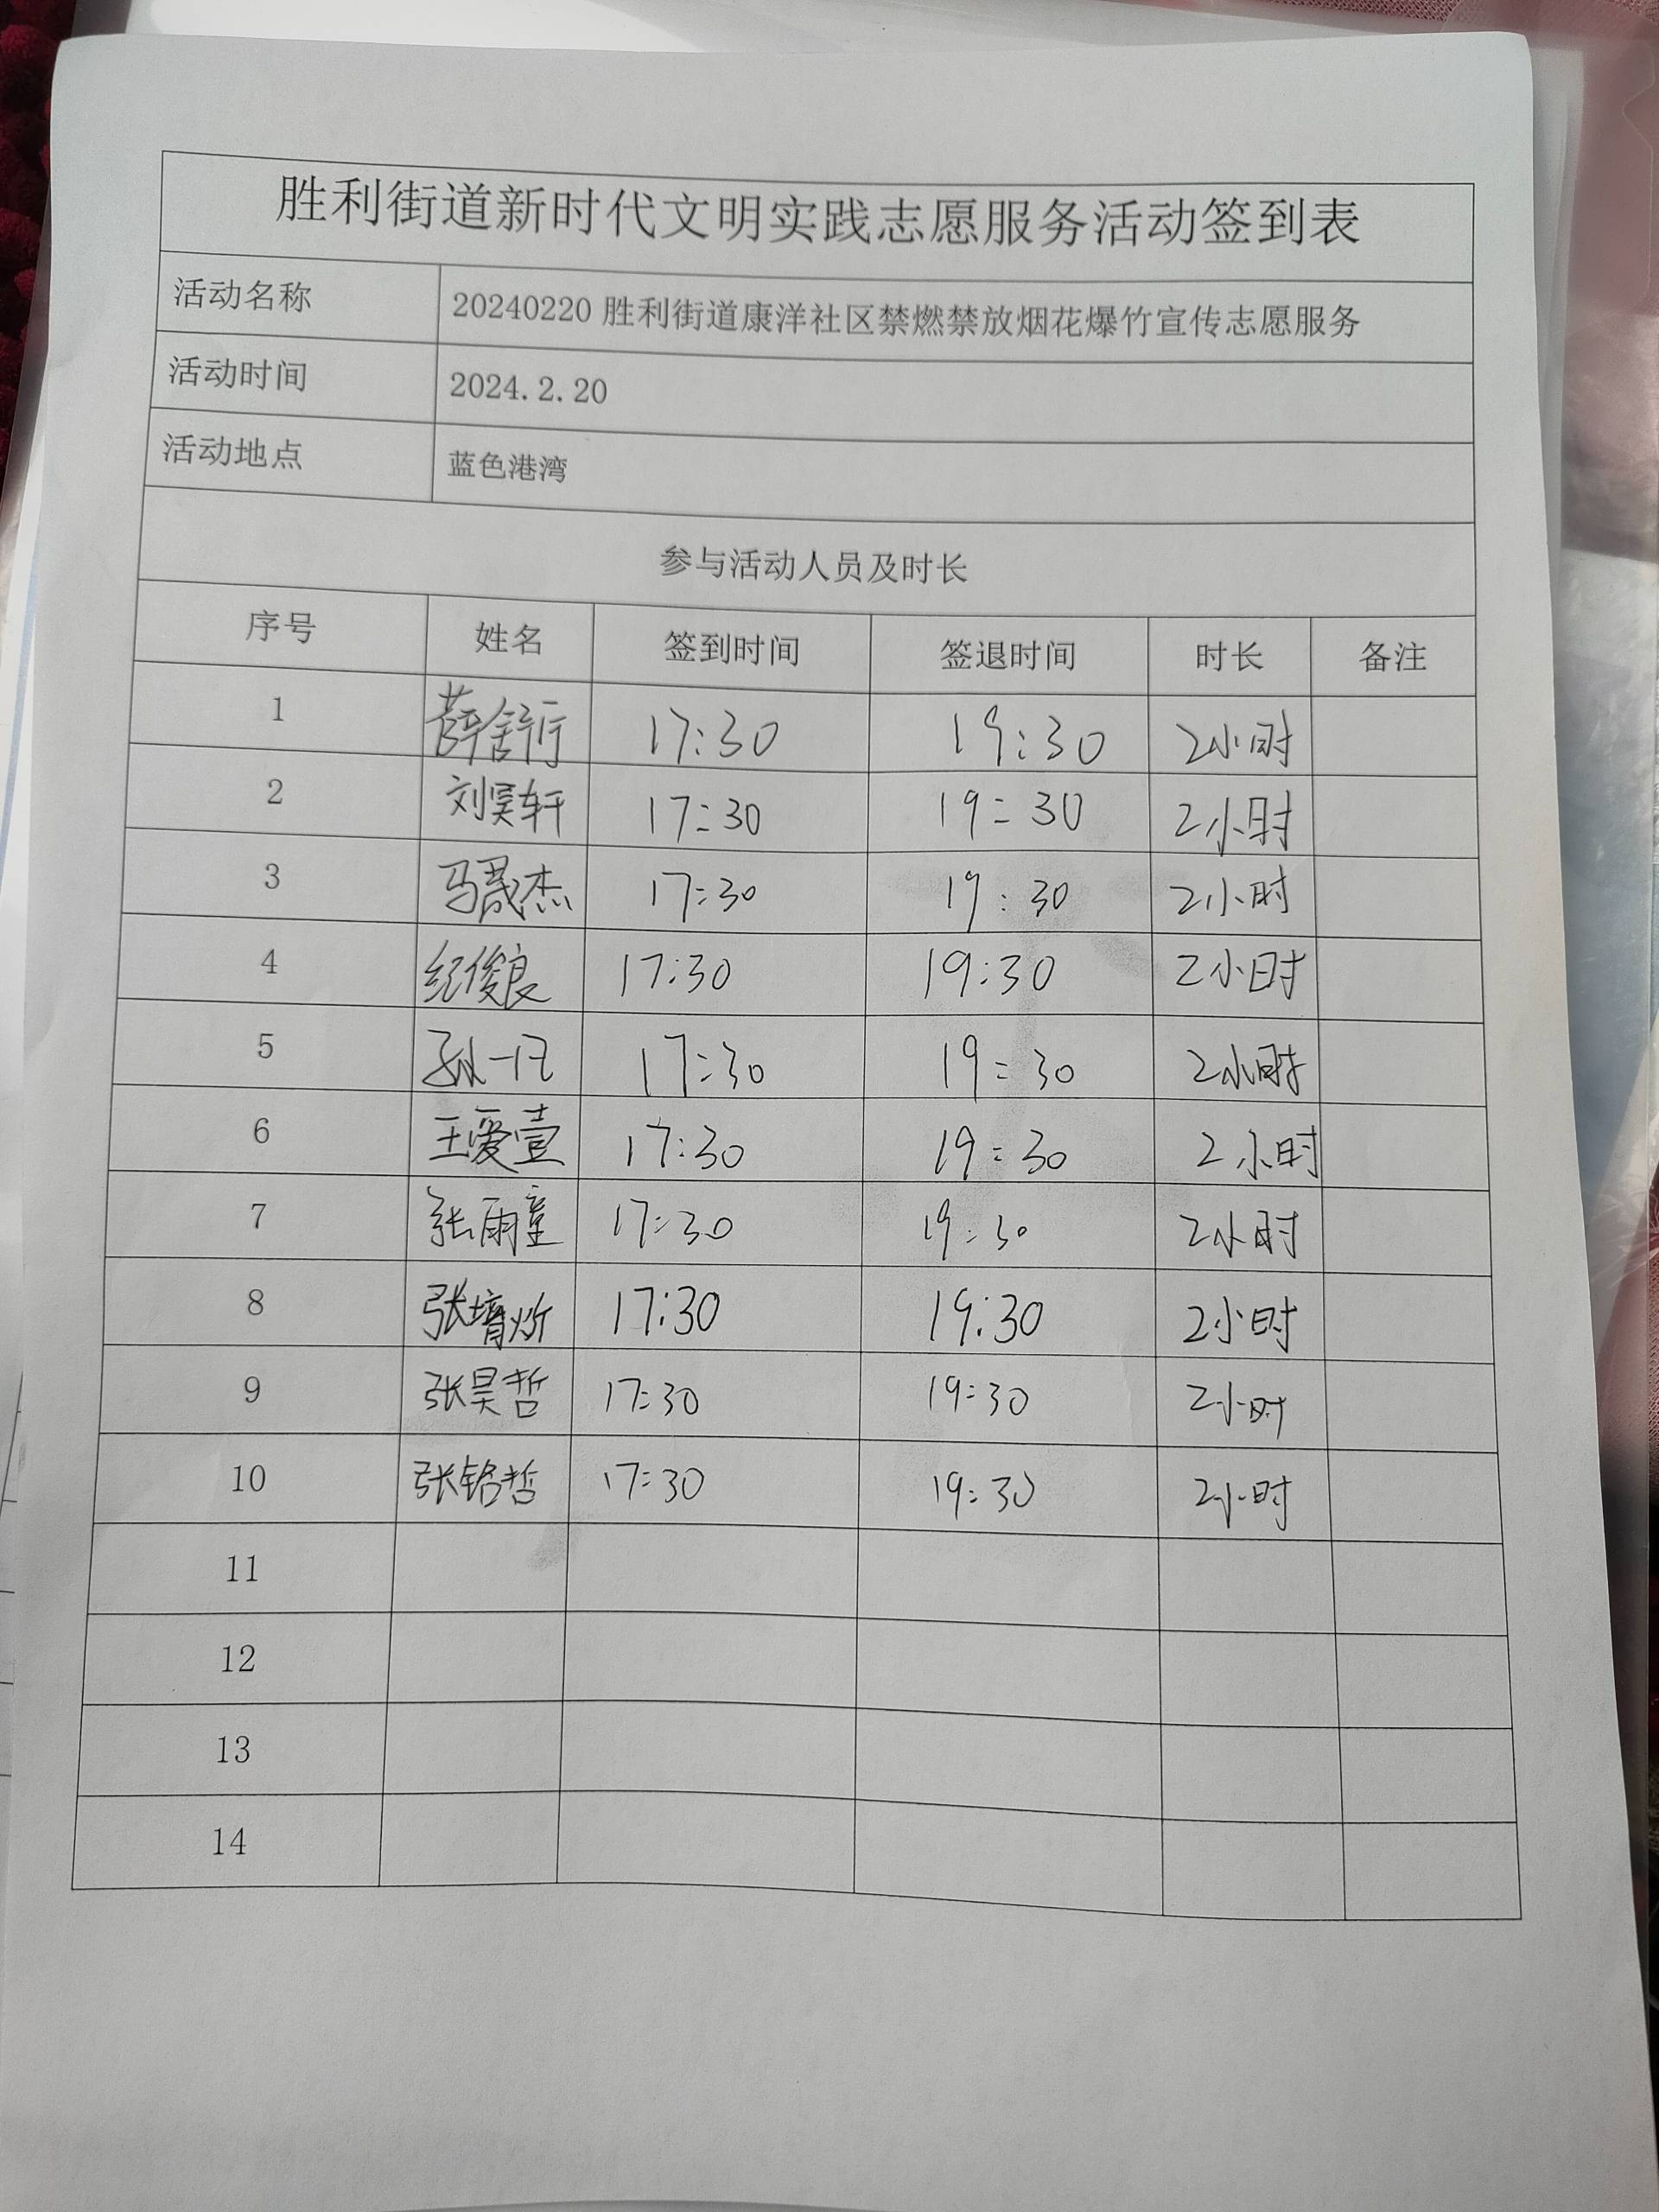 胜利街道新时代文明实践志愿服务活动签到表
活动名称 20240220 胜利街道康洋社区禁燃禁放烟花爆竹宣传志愿服务
活动时间 2024.2.20
活动地点 蓝色港湾
参与活动人员及时长
序号 姓名 签到时间 签退时间 时长 备注
1 薛舒行 17:30 19:30 2小时
2 刘昊轩 17:30 19:30 2小时
3 马晟杰 17:30 19:30 2小时
4 纪俊良 17:30 19:30 2小时
5 孙一 17:30 19:30 2小时
6 王爱壹 17:30 19:30 2小时
7 张雨童 17:30 19:30 2小时
8 张堉炘 17:30 19:30 2小时
9 张昊哲 17:30 19:30 2小时
10 张铭哲 17:30 19:30 2小时
11
12
13
14